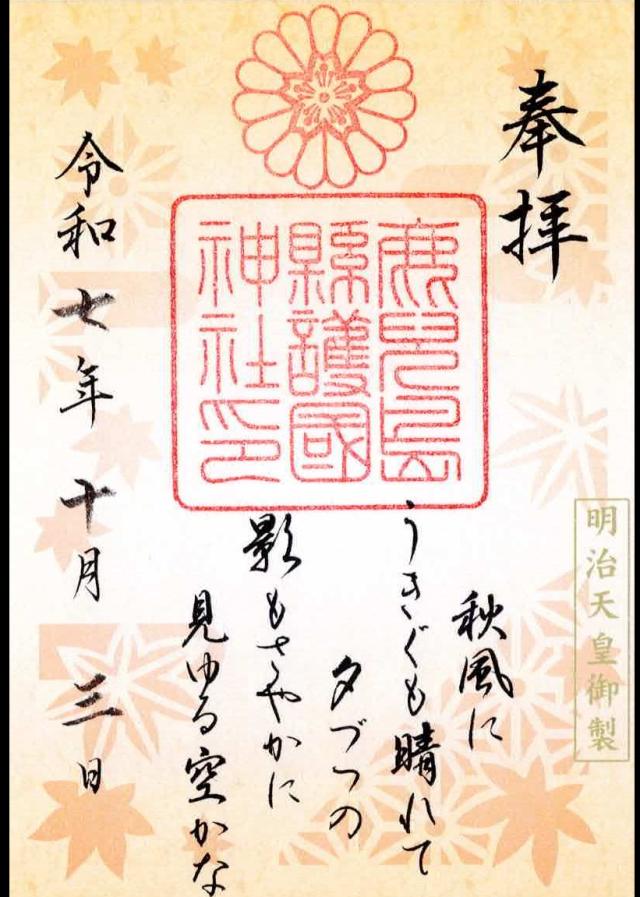 奉拝
鹿児島
縣護國
神社印
明治天皇御製
秋風に
うきぐも晴れて
夕づつの
影もさやかに
見ゆる空かな
令和七年十月三日